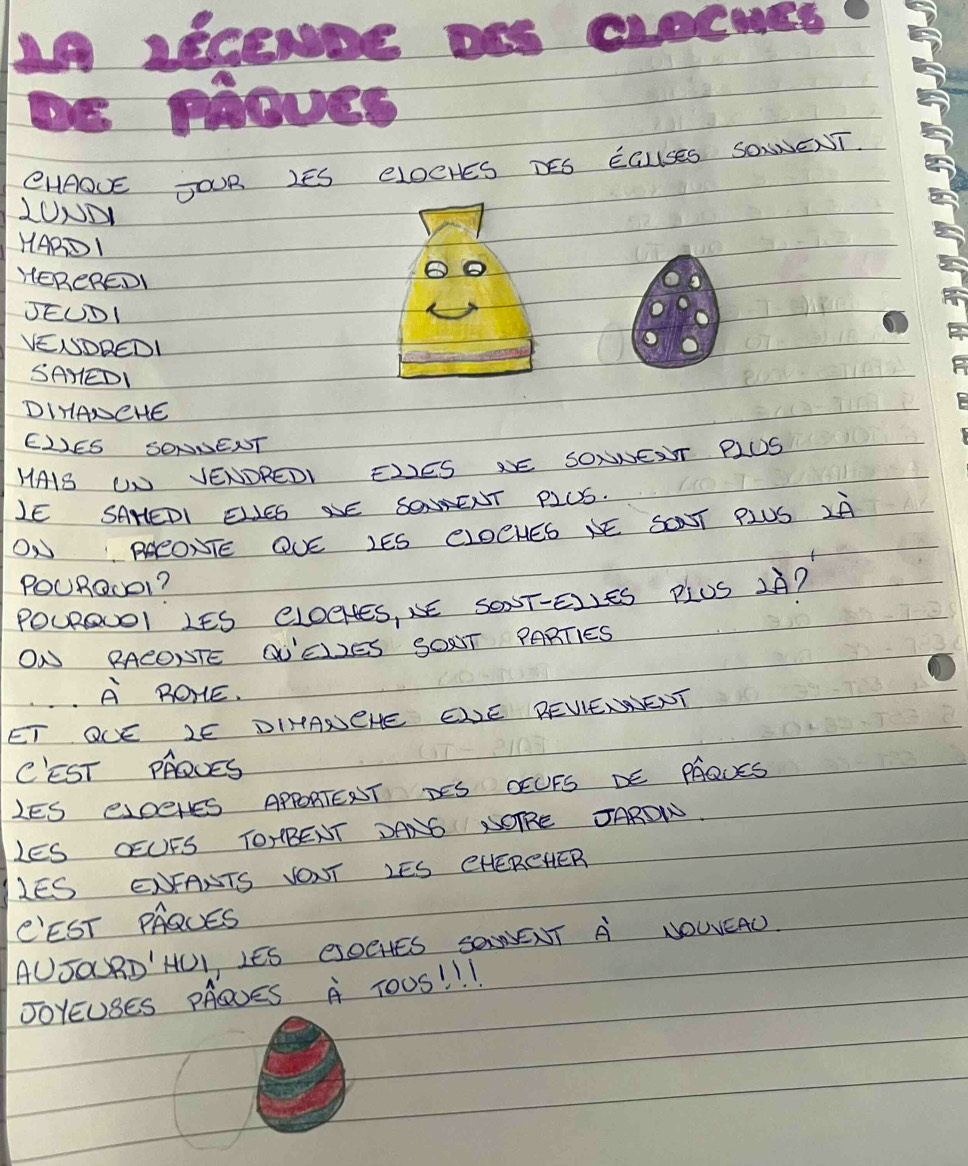 LA LÉGENDE DES CLOCHES
DE PÂQUES
CHAQUE JOUR LES CLOCHES DES ÉGLISES SONNENT.
LUNDI
MARDI
MERCREDI
JEUDI
VENDREDI
SAMEDI
DIMANCHE
ELLES SONNENT
MAIS UN VENDREDI ELLES NE SONNENT PLUS
LE SAMEDI ELLES NE SONNENT PLUS.
ON RACONTE QUE LES CLOCHES NE SONT PLUS LÀ
POURQUOI?
POURQUOI LES CLOCHES, NE SONT-ELLES PLUS LÀ?
ON RACONTE QU'ELLES SONT PARTIES
... À ROME.
ET QUE LE DIMANCHE ELLE REVIENNENT
C'EST PÂQUES
LES CLOCHES APPORTENT DES OEUFS DE PÂQUES
LES OEUFS TOMBENT DANS NOTRE JARDIN.
LES ENFANTS VONT LES CHERCHER
C'EST PÂQUES
AUJOURD'HUI, LES CLOCHES SONNENT À NOUVEAU.
JOYEUSES PÂQUES À TOUS!!!